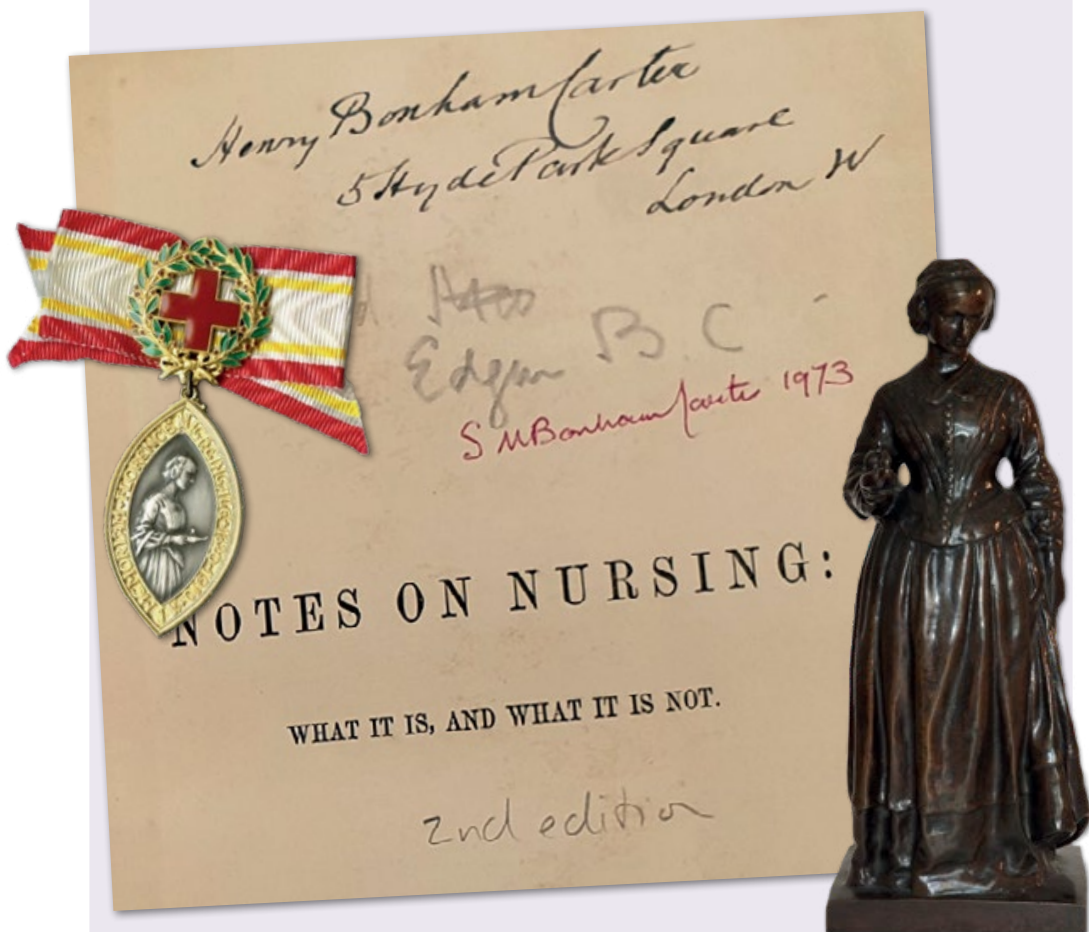 Henry Bonham Carter
5 Hyde Park Square
London W
Edgar B C
S M Bonham Carter 1973
NOTES ON NURSING:
WHAT IT IS, AND WHAT IT IS NOT.
2nd edition